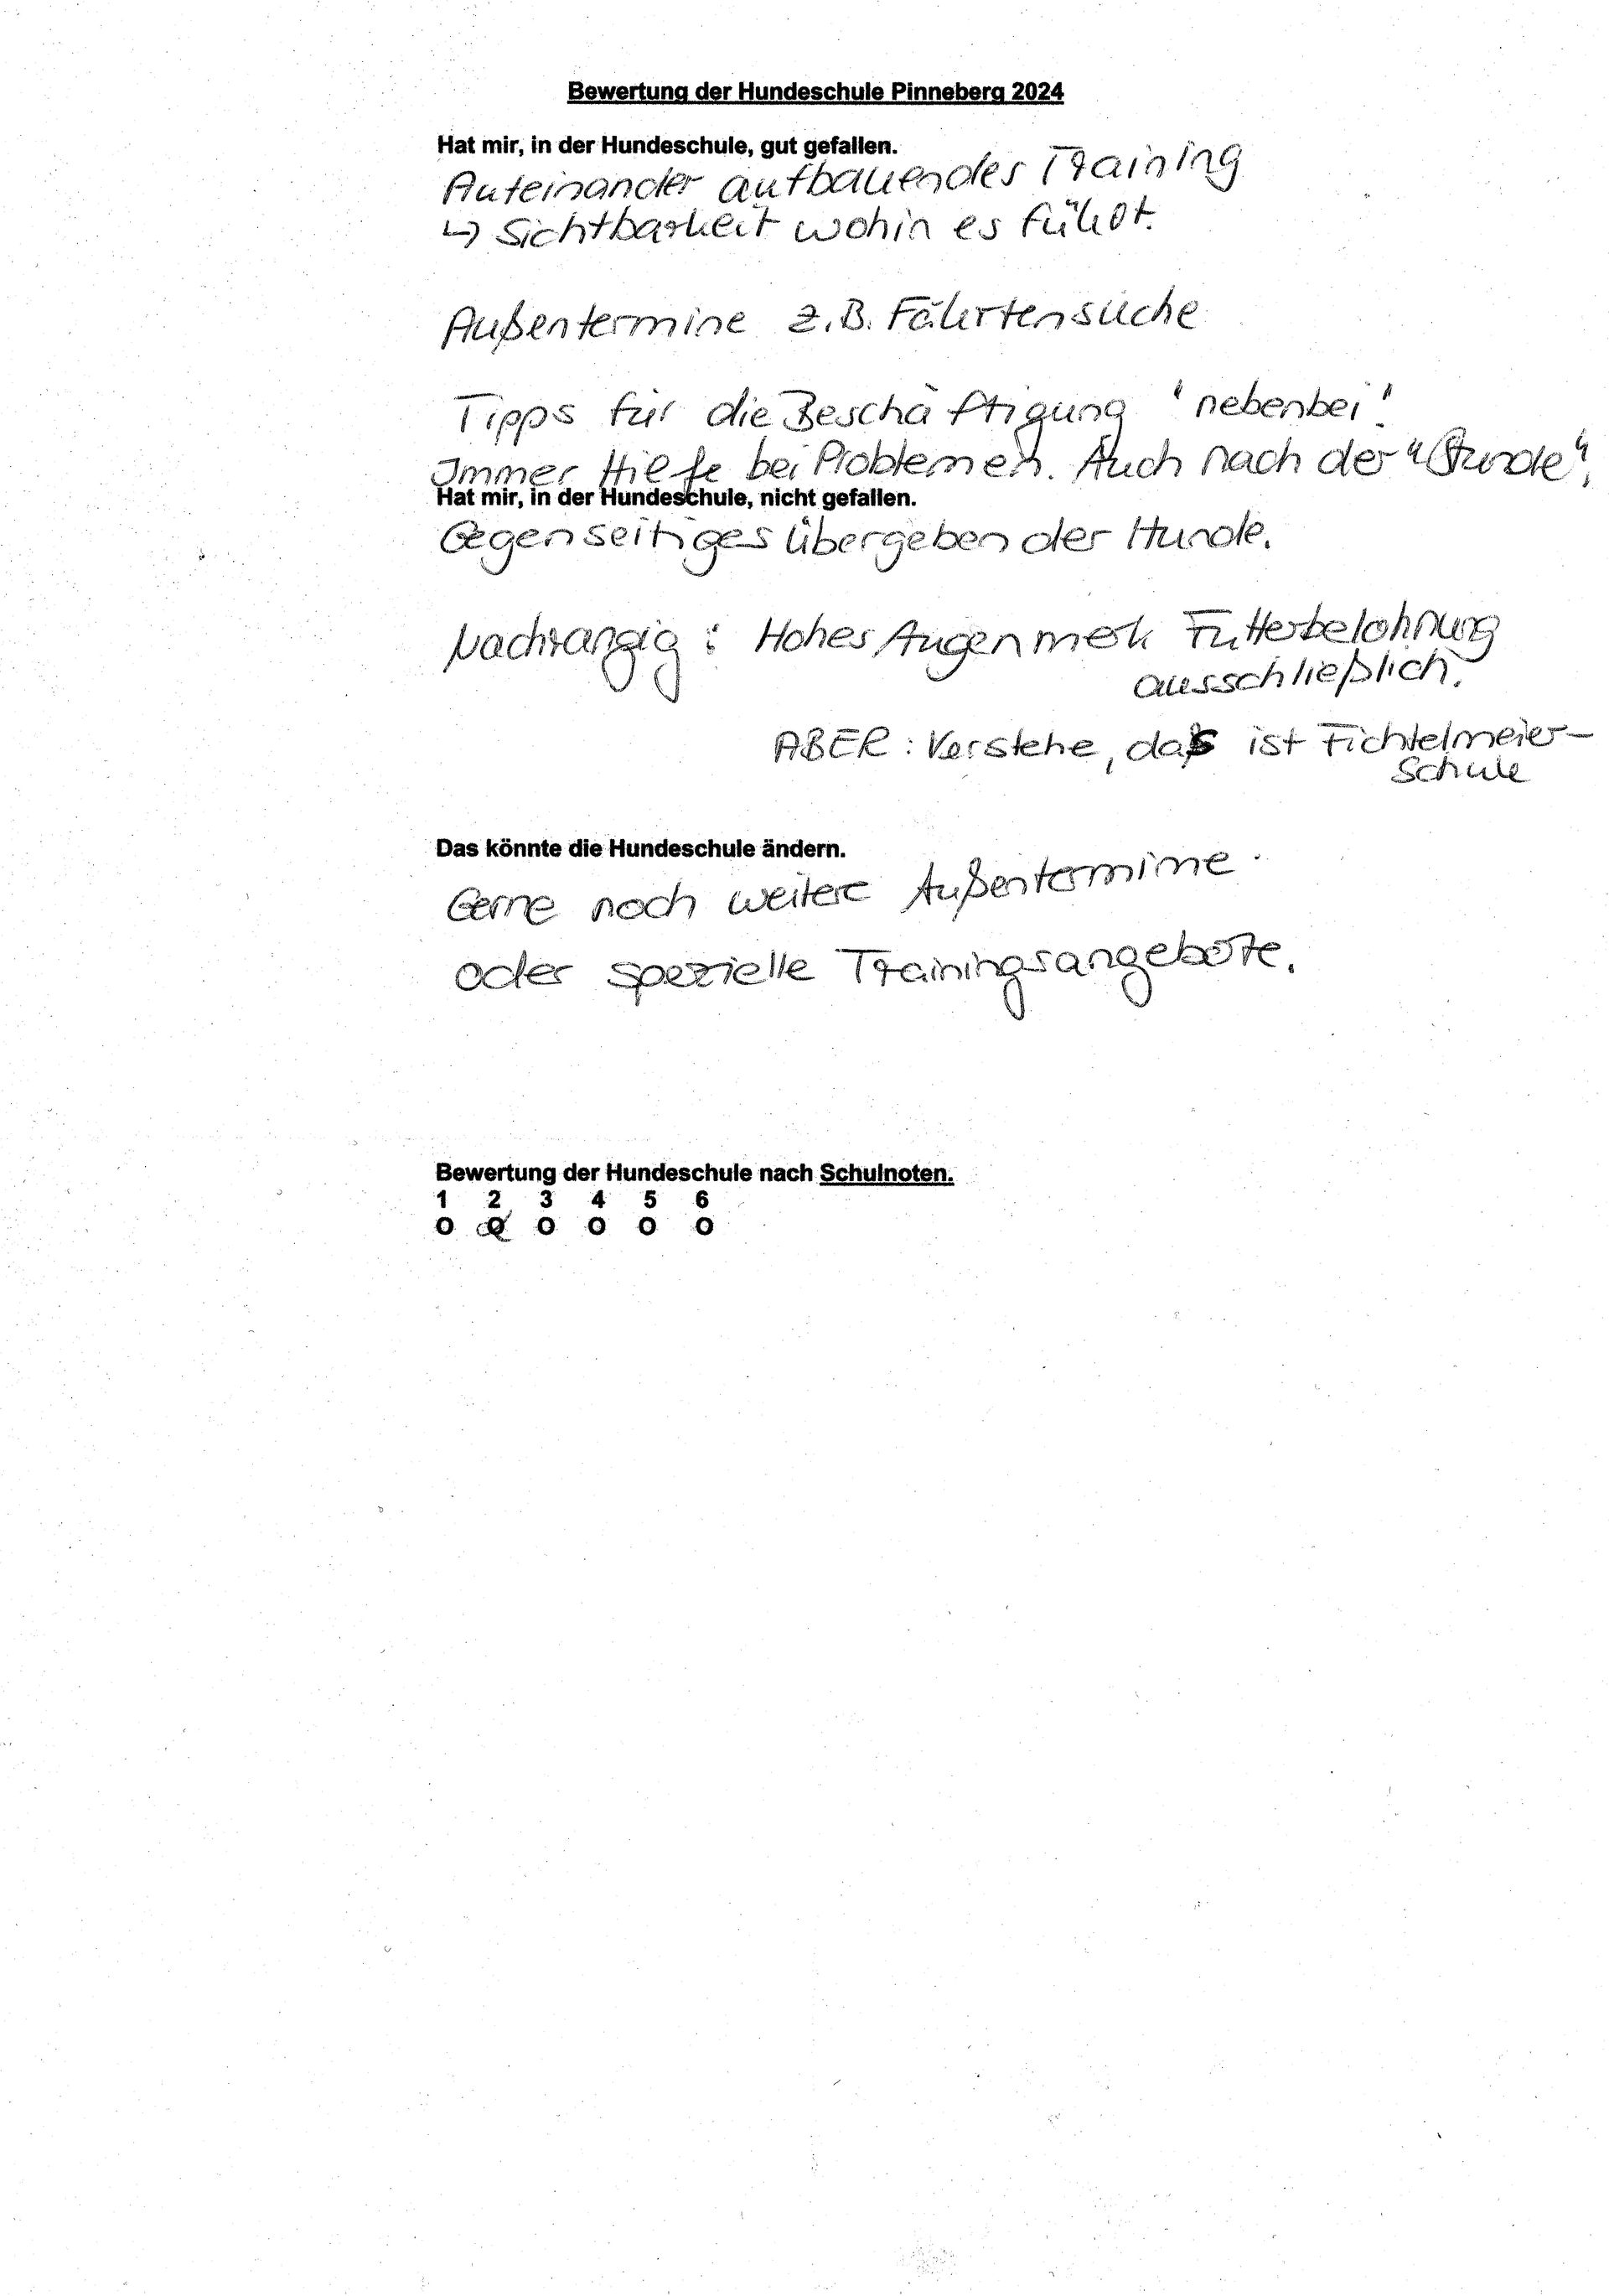 Bewertung der Hundeschule Pinneberg 2024
Hat mir, in der Hundeschule, gut gefallen.
Aufeinander aufbauendes Training
↳ Sichtbarkeit wohin es führt.
Außentermine z.B. Fährtensuche
Tipps für die Beschäftigung "nebenbei".
Immer Hilfe bei Problemen. Auch nach der "Stunde".
Hat mir, in der Hundeschule, nicht gefallen.
Gegenseitiges übergeben der Hunde.
Nachrangig: Hohes Augenmerk Futterbelohnung
ausschließlich.
ABER: Verstehe, das ist Fichtelmeier-
Schule
Das könnte die Hundeschule ändern.
Gerne noch weitere Außentermine.
oder spezielle Trainingsangebote.
Bewertung der Hundeschule nach Schulnoten.
1 2 3 4 5 6
O O O O O O